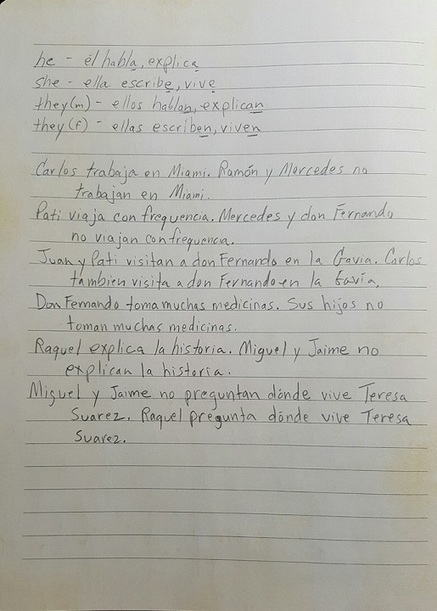 he - él habla, explica
she - ella escribe, vive
they(m) - ellos hablan, explican
they(f) - ellas escriben, viven
Carlos trabaja en Miami. Ramón y Mercedes no
trabajan en Miami.
Pati viaja con frequencia. Mercedes y don Fernando
no viajan con frequencia.
Juan y Pati visitan a don Fernando en la Gavia. Carlos
tambien visita a don Fernando en la Gavia.
Don Fernando toma muchas medicinas. Sus hijos no
toman muchas medicinas.
Raquel explica la historia. Miguel y Jaime no
explican la historia.
Miguel y Jaime no preguntan dónde vive Teresa
Suarez. Raquel pregunta dónde vive Teresa
Suarez.